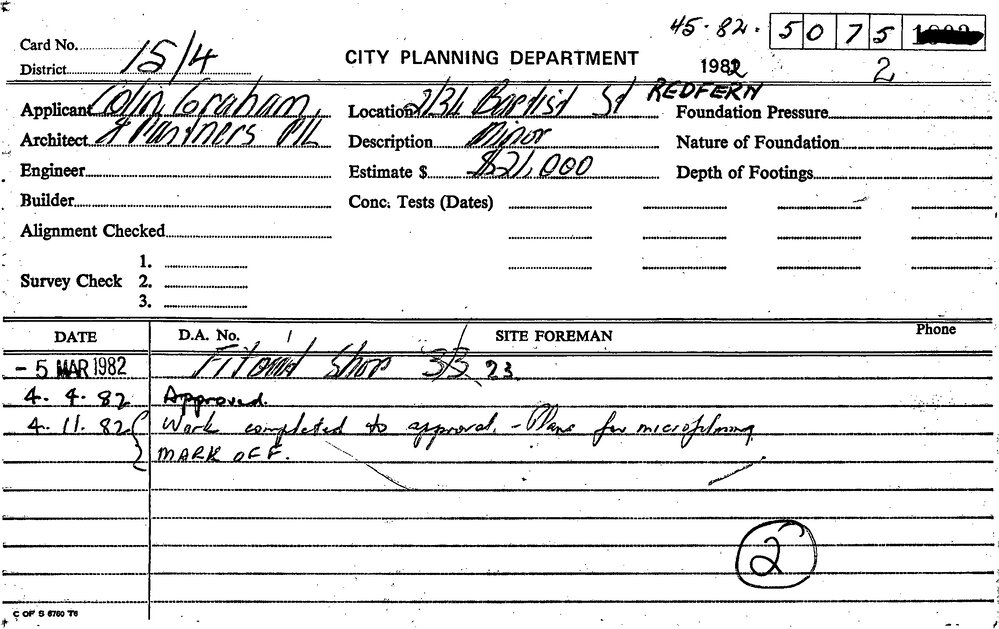 45.82. 5075
Card No. 15/4
District
CITY PLANNING DEPARTMENT
1982
2
Applicant Colin Graham
Location 2/34 Baptist St REDFERN
Foundation Pressure
Architect & Partners P/L
Description Minor
Nature of Foundation
Engineer
Estimate $ $21,000
Depth of Footings
Builder
Conc. Tests (Dates)
Alignment Checked
1.
Survey Check 2.
3.
DATE D.A. No. SITE FOREMAN Phone
- 5 MAR 1982 Fitout Shop 23
4. 4. 82 Approved.
4. 11. 82 Work completed to approval. - Plans for microfilming
MARK OFF.
2
C OF S 6760 T6